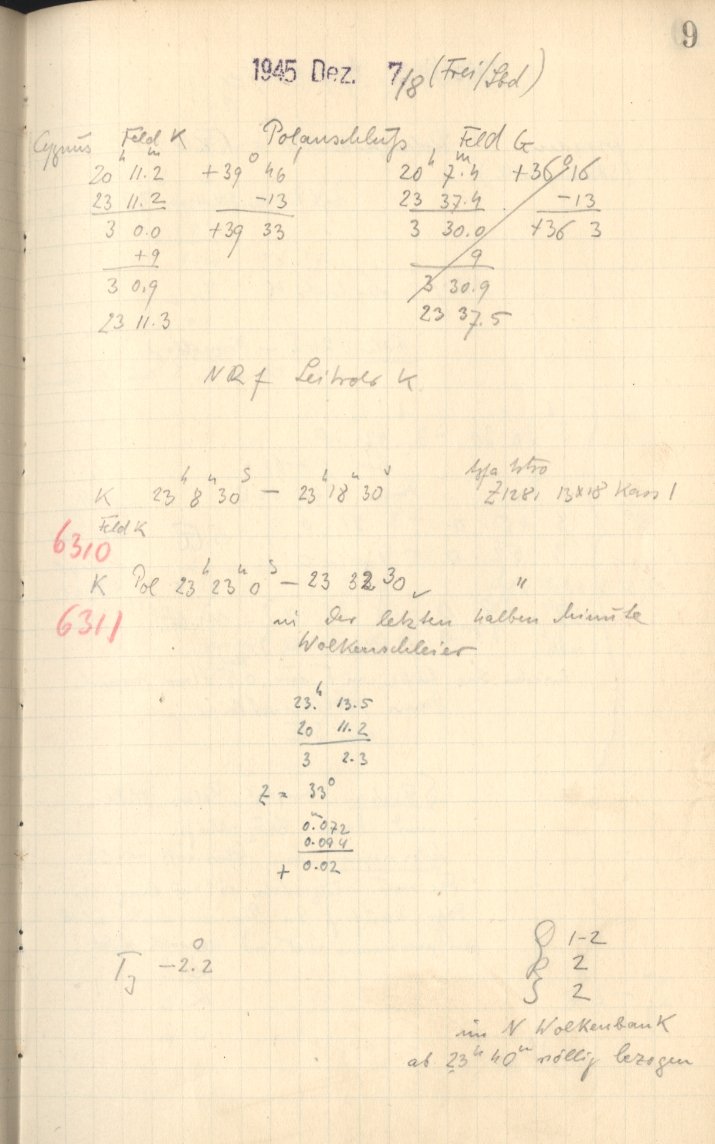 9
1945 Dez. 7/8 (Frei/Sbd)
Cygnus Feld K Polanschluss, Feld G
20h 11.2m +39° 46 20h 7.4m +36° 16
23 11.2 -13 23 37.4 -13
3 0.0 +39 33 3 30.0 +36 3
+9 9
3 0.9 3 30.9
23 11.3 23 37.5
Leitrohr K
K 23h 8m 30s — 23h 18m 30s Z1281 13x18 Kass 1
Feld K
6310
K Pol 23h 23m 0s — 23 32 30 "
6311 in der letzten halben Minute
Wolkenschleier
23.h 13.5
20 11.2
3 2.3
z = 33°
0.m072
0.094
+ 0.02
-2.°2
1-2
R 2
S 2
im N Wolkenbank
ab 23h 40m völlig bezogen